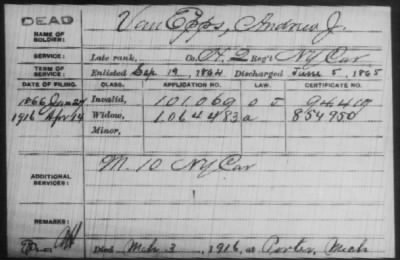 DEAD
NAME OF SOLDIER: Van Epps, Andrew J.
SERVICE: Late rank, Co. H. 2 Reg't NY Cav
TERM OF SERVICE: Enlisted Sep 19, 1864 Discharged June 5, 1865
DATE OF FILING. CLASS. APPLICATION NO. LAW. CERTIFICATE NO.
1866 Invalid, 101.069
1916 Apr 14 Widow, 1064483 a 854950
Minor,
ADDITIONAL SERVICES: M. 10 NY Cav
REMARKS:
Died Mch 3, 1916, at Porter, Mich